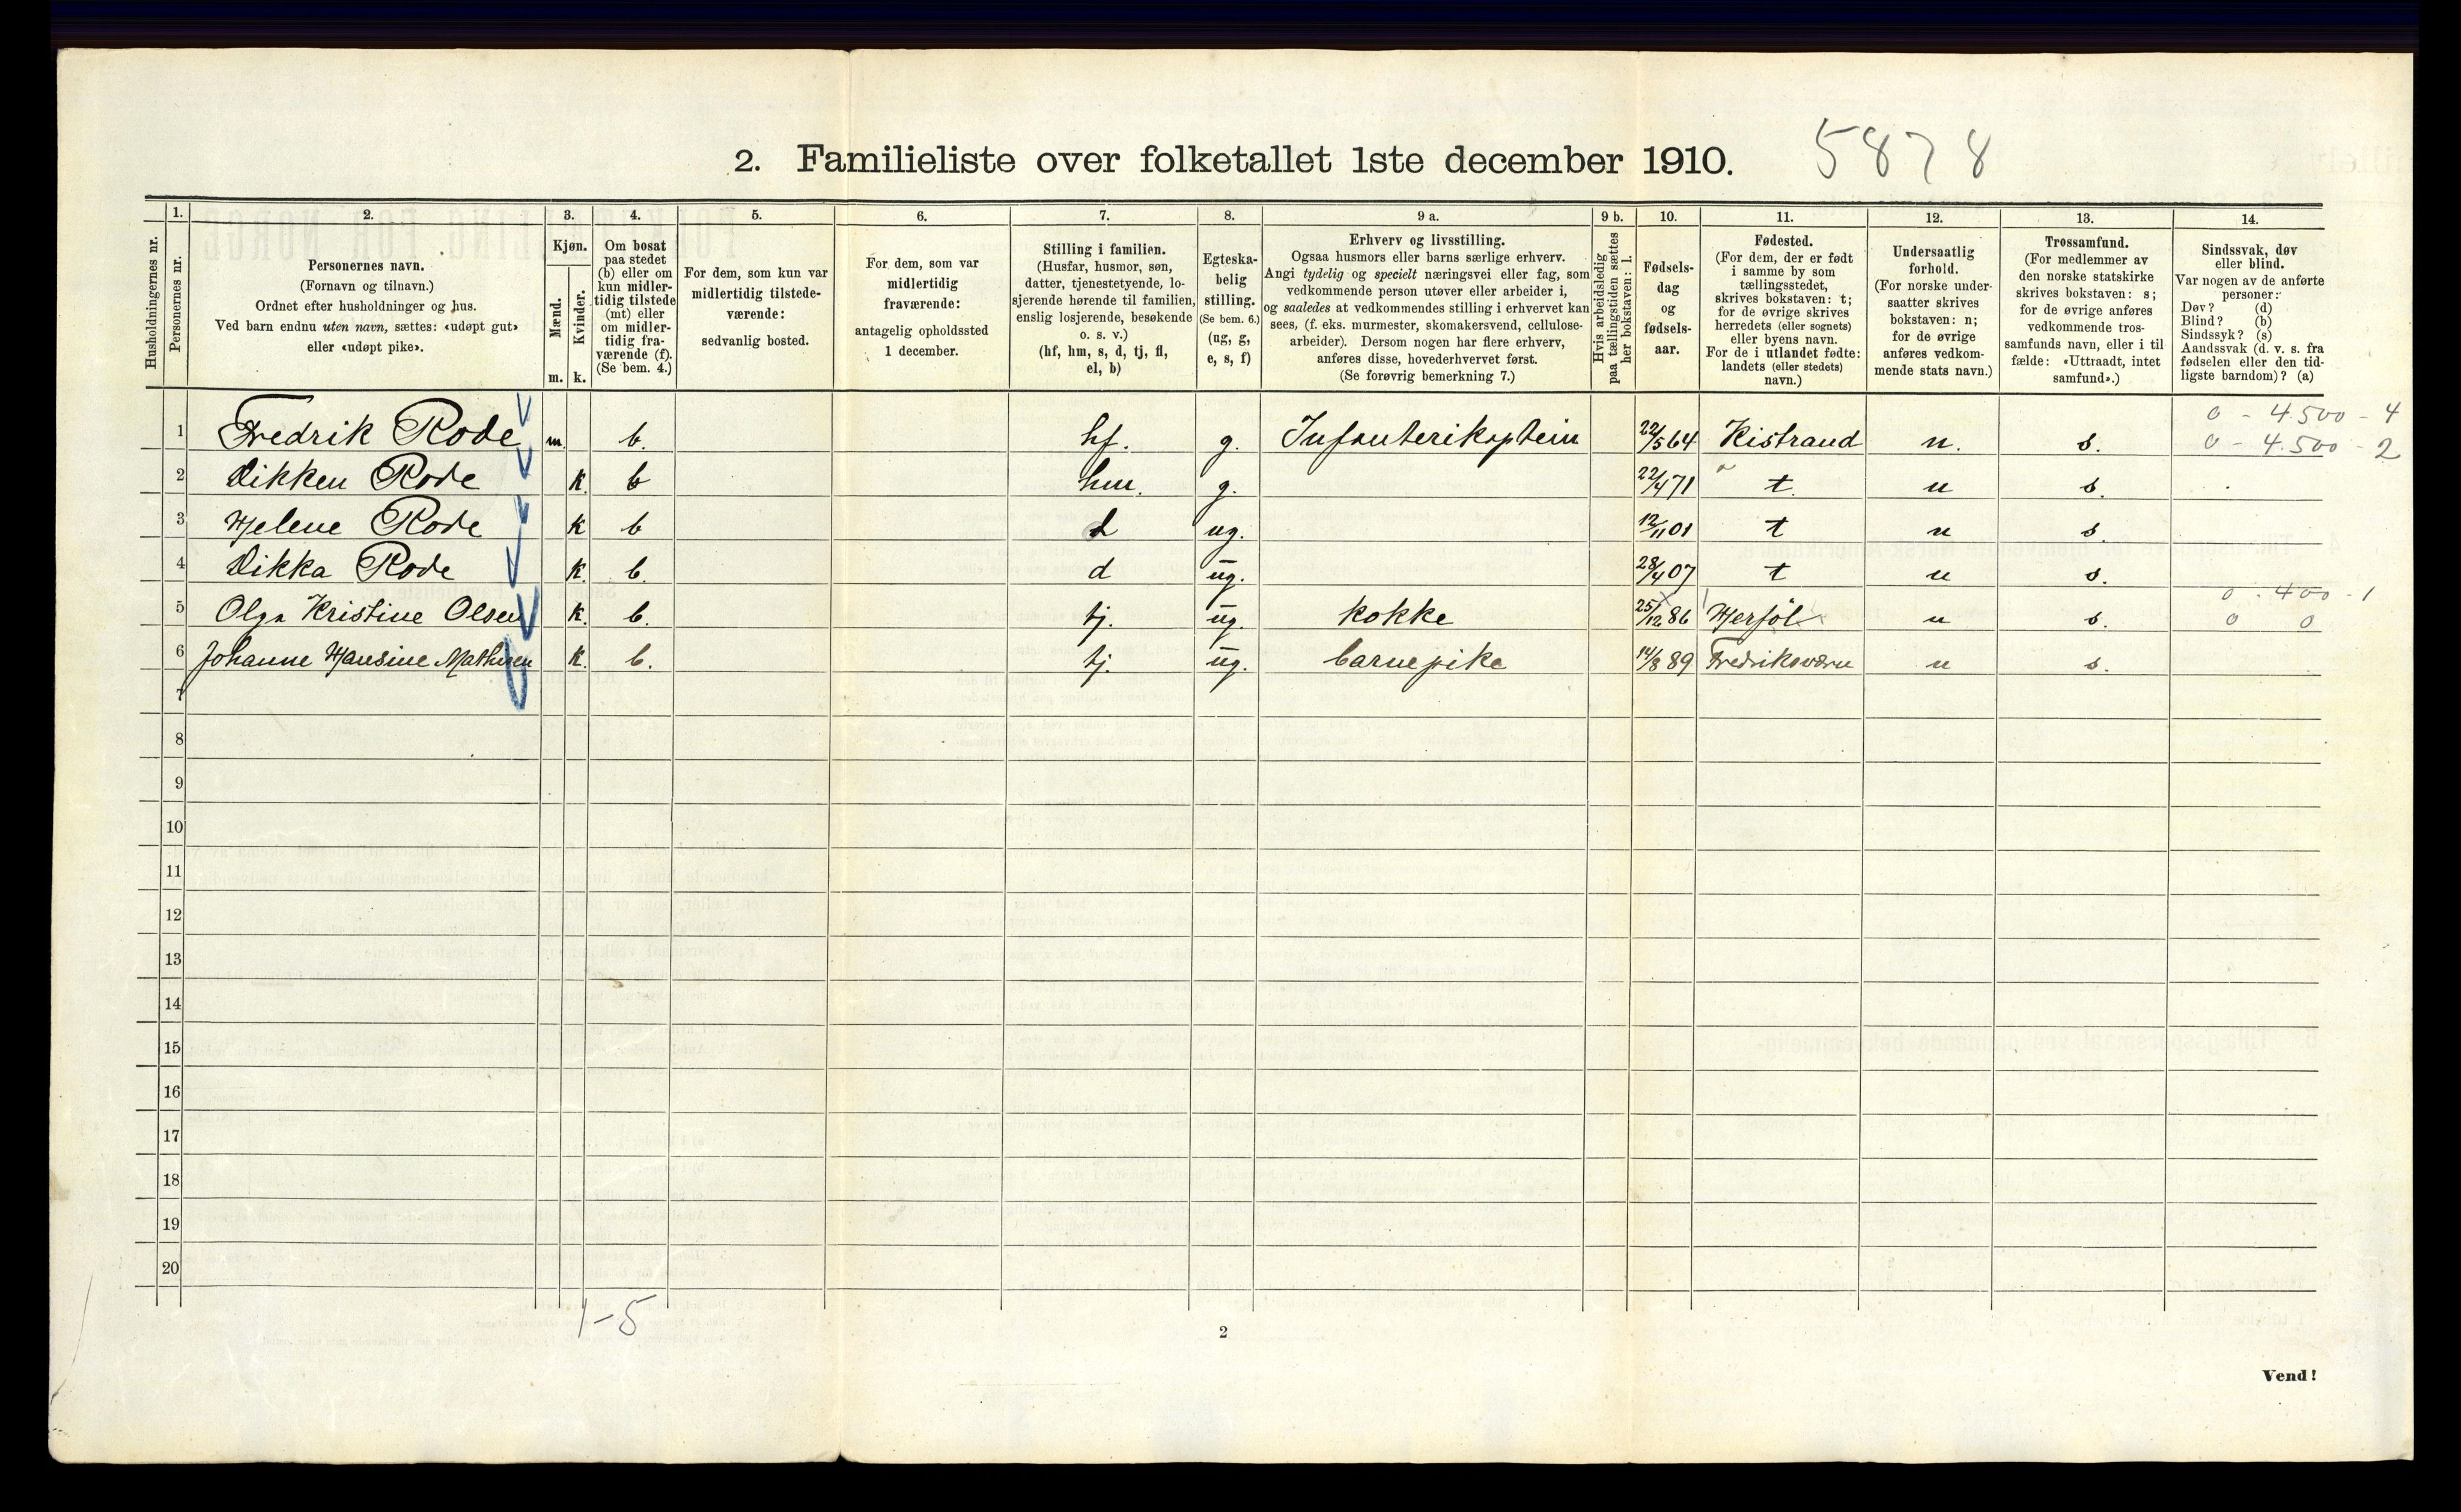 2. Familieliste over folketallet 1ste december 1910. 5878
Husholdningernes nr.
1. Personernes nr.
2. Personernes navn. (Fornavn og tilnavn.) Ordnet efter husholdninger og hus. Ved barn endnu uten navn, sættes: «udøpt gut» eller «udøpt pike».
3. Kjøn. Mænd. m. Kvinder. k.
4. Om bosat paa stedet (b) eller om kun midlertidig tilstede (mt) eller om midlertidig fraværende (f). (Se bem. 4.)
5. For dem, som kun var midlertidig tilstedeværende: sedvanlig bosted.
6. For dem, som var midlertidig fraværende: antagelig opholdssted 1 december.
7. Stilling i familien. (Husfar, husmor, søn, datter, tjenestetyende, losjerende hørende til familien, enslig losjerende, besøkende o. s. v.) (hf, hm, s, d, tj, fl, el, b)
8. Egteskabelig stilling. (Se bem. 6.) (ug, g, e, s, f)
9 a. Erhverv og livsstilling. Ogsaa husmors eller barns særlige erhverv. Angi tydelig og specielt næringsvei eller fag, som vedkommende person utøver eller arbeider i, og saaledes at vedkommendes stilling i erhvervet kan sees, (f. eks. murmester, skomakersvend, cellulosearbeider). Dersom nogen har flere erhverv, anføres disse, hovederhvervet først. (Se forøvrig bemerkning 7.)
9 b. Hvis arbeidsledig paa tællingstiden sættes her bokstaven: l.
10. Fødselsdag og fødselsaar.
11. Fødested. (For dem, der er født i samme by som tællingsstedet, skrives bokstaven: t; for de øvrige skrives herredets (eller sognets) eller byens navn. For de i utlandet fødte: landets (eller stedets) navn.)
12. Undersaatlig forhold. (For norske undersaatter skrives bokstaven: n; for de øvrige anføres vedkommende stats navn.)
13. Trossamfund. (For medlemmer av den norske statskirke skrives bokstaven: s; for de øvrige anføres vedkommende trossamfunds navn, eller i tilfælde: «Uttraadt, intet samfund».)
14. Sindssvak, døv eller blind. Var nogen av de anførte personer: Døv? (d) Blind? (b) Sindssyk? (s) Aandssvak (d. v. s. fra fødselen eller den tidligste barndom)? (a)
0 - 4.500 - 4
1 Fredrik Rode m. b. hf. g. Infanterikaptein 22/5 64 Kistrand n. s. 0 - 4.500 - 2
2 Dikken Rode k. b hm. g. 22/4 71 t. n s.
3 Helene Rode k b d ug. 12/11 01 t n s.
4 Dikka Rode k. b. d ug. 28/4 07 t n s.
0 - 400 - 1
5 Olga Kristine Olsen k. b. tj. ug. kokke 25/12 86 Herføl n s. 0 0
6 Johanne Hansine Mathisen k. b. tj. ug. barnepike 14/8 89 Fredriksværn n s.
7
8
9
10
11
12
13
14
15
16
17
18
19
20
1-5
2
Vend!